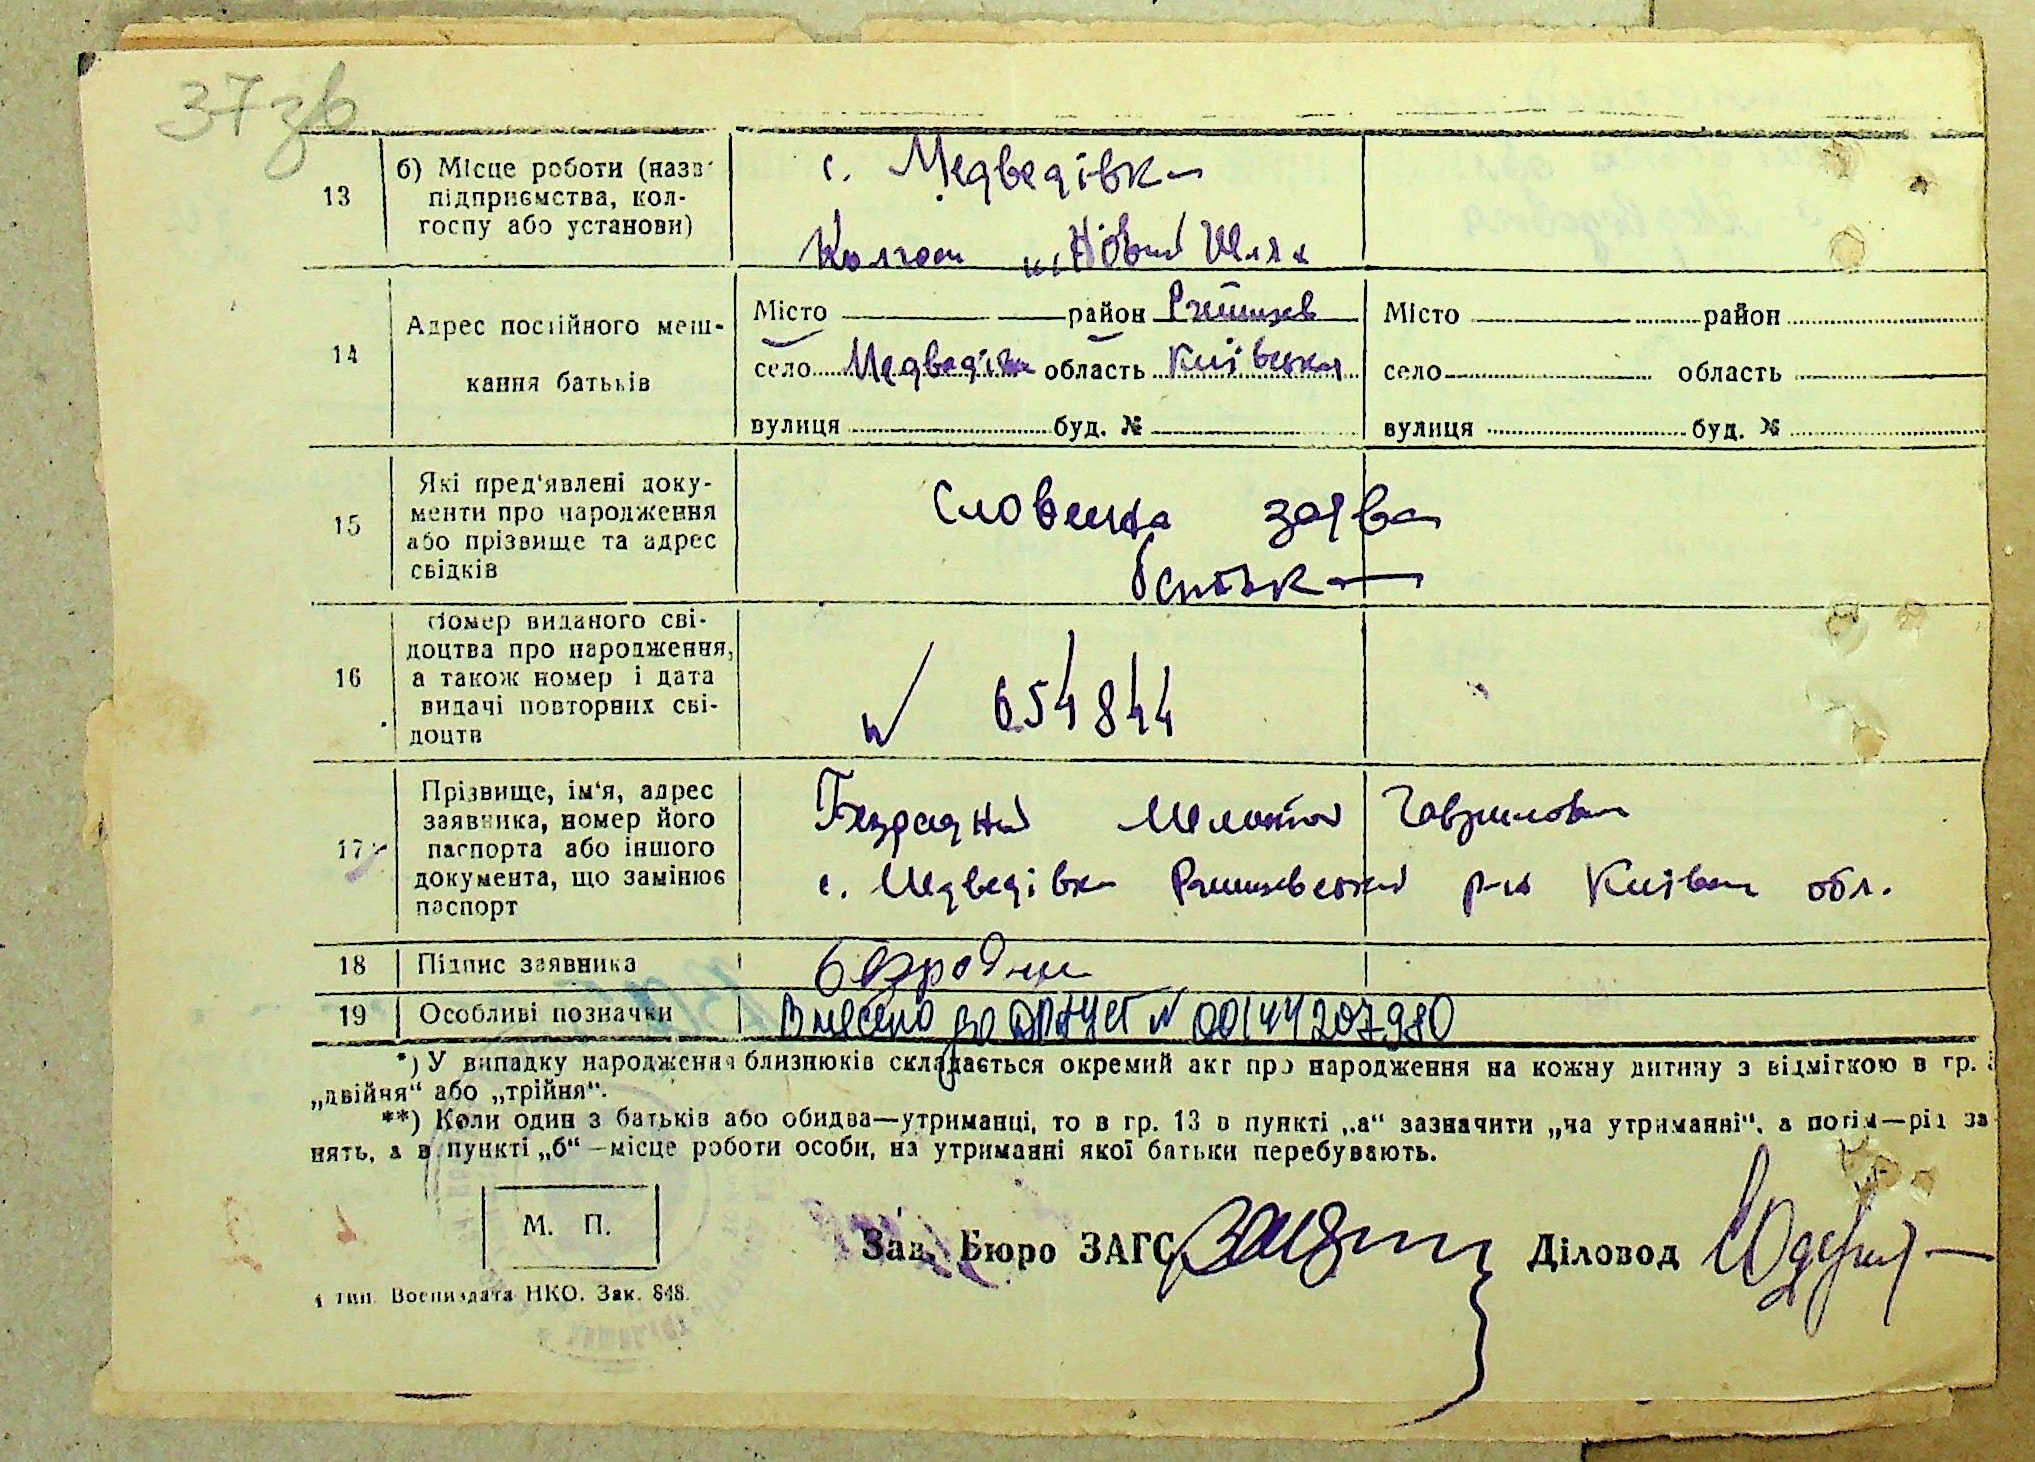 37 зв
13 б) Місце роботи (назв підприємства, кол-
госпу або установи)
с. Медведівка
Колгосп „Новий Шлях
14 Адрес постійного меш-
кання батьків
Місто район Ржищев
село Медведівка область Київська
вулиця буд. №
Місто район
село область
вулиця буд. №
15 Які пред'явлені доку-
менти про народження
або прізвище та адрес
свідків
Словесна заява
батька
16 Номер виданого сві-
доцтва про народження,
а також номер і дата
видачі повторних сві-
доцтв
654844
17 Прізвище, ім'я, адрес
заявника, номер його
паспорта або іншого
документа, що замінює
паспорт
Безродний Мелентій Гаврилович
с. Медведівка Ржищевський р-н Київська обл.
18 Підпис заявника
Безродни
19 Особливі позначки
Внесено до ДРАЦСГ № 00144207980
*) У випадку народження близнюків складається окремий акт про народження на кожну дитину з відміткою в гр.
„двійня“ або „трійня“.
**) Коли один з батьків або обидва—утриманці, то в гр. 13 в пункті „а“ зазначити „на утриманні“, а потім—рід за
нять, а в пункті „б“—місце роботи особи, на утриманні якої батьки перебувають.
М. П.
Зав. Бюро ЗАГС Діловод
тип. Воениздата НКО. Зак. 848.